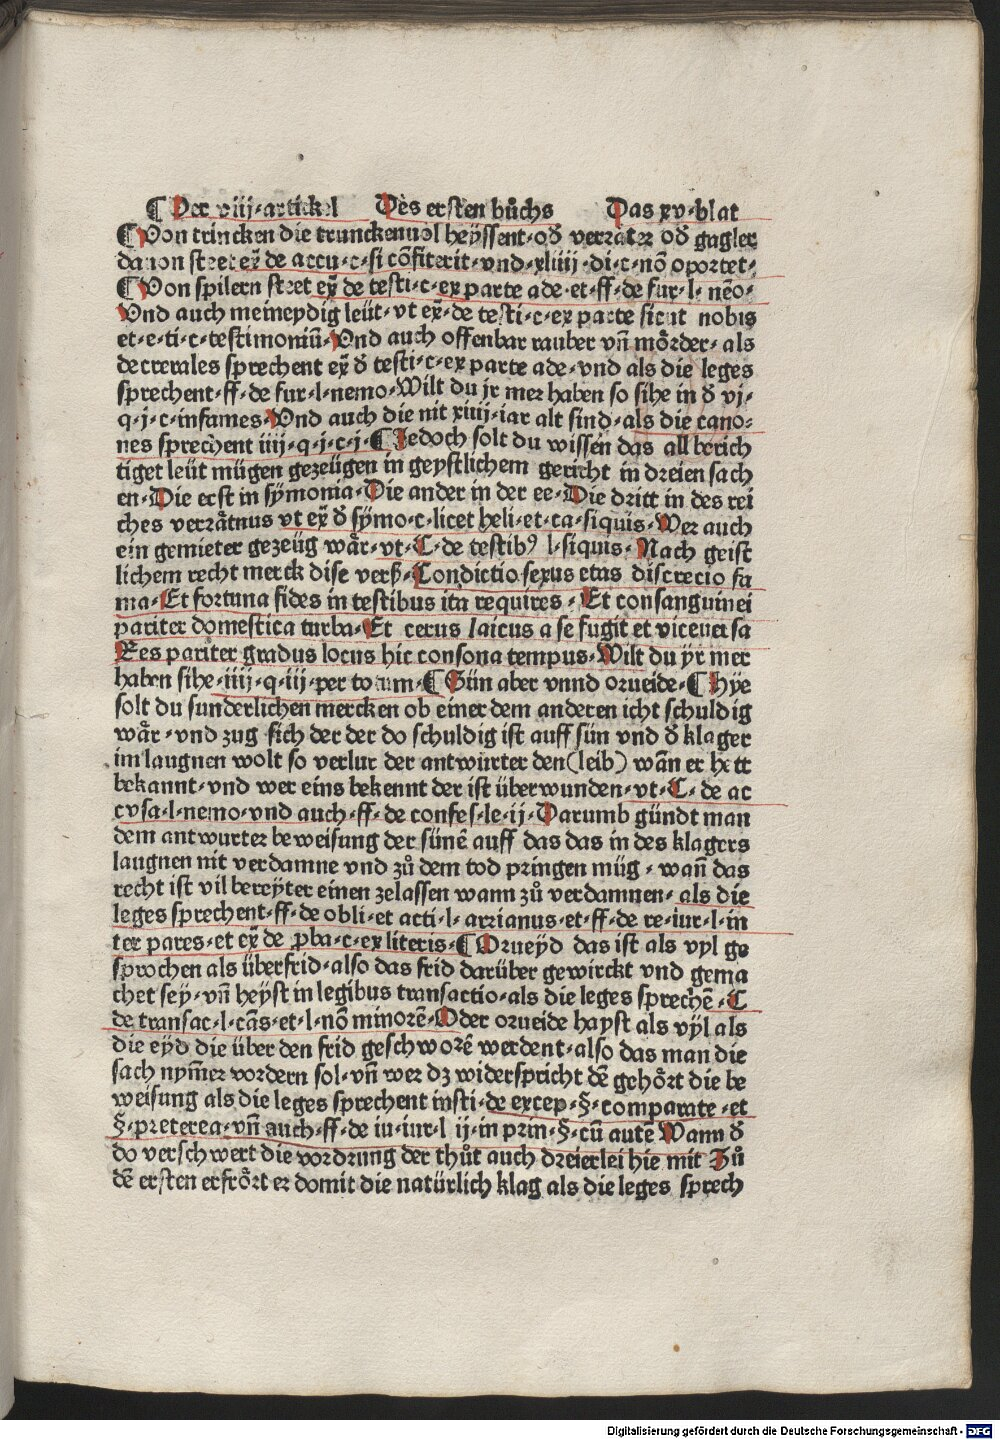 ¶ Der viij·artickel Des ersten bůchs Das xv·blat
¶ Von trincken die trunckenuol heyssent·od̄ verräter od̄ gagler
dauon steet ex̄ de accu·c·si cōfiterit·vnd·xliiij·di·c·nō oportet·
¶ Von spilern steet ex̄ de testi·c·ex parte ade·et·ff·de fur·l·nēo·
Vnd auch meineydig leüt·vt ex̄·de testi·c·ex parte sicut nobis
et·e·ti·c·testimoniū·Vnd auch offenbar rauber vn̄ mörder·als
decretales sprechent ex̄ d̄ testi·c·ex parte ade·vnd als die leges
sprechent·ff·de fur·l·nemo·Wilt du jr mer haben so sihe in d̄ vj·
q·j·c·infames·Vnd auch die nit xiiij·iar alt sind·als die cano·
nes sprechent iiij·q·j·c·j·¶ Jedoch solt du wissen das all berich
tiget leüt mügen gezeügen in geystlichem gericht in dreien sach
en·Die erst in sÿmonia·Die ander in der ee·Die dritt in des rei
ches verrätnus vt ex̄ d̄ sÿmo·c·licet heli·et·ca·siquis·Wer auch
ein gemieter gezeüg wär·vt·C·de testibꝰ l·siquis·Nach geist
lichem recht merck dise verß·Condictio sexus etas discrecio fa
ma·Et fortuna fides in testibus ita requires·Et consanguinei
pariter domestica turba·Et cerus laicus a se fugit et viceuersa
Res pariter gradus locus hic consona tempus·Wilt du ÿr mer
haben sihe·iiij·q·iij·per totum·¶ Sün aber vnnd orueide·¶ Hÿe
solt du sunderlichen mercken ob einer dem anderen icht schuldig
wär·vnd zug sich der der do schuldig ist auff sün vnd d̄ klager
im laugnen wolt so verlur der antwurter den (leib) wān er hett
bekannt·vnd wer eins bekennt der ist überwunden·vt·C·de ac
cusa·l·nemo·vnd auch·ff·de confes·le·ij·Darumb gündt man
dem antwurter beweisung der sünē auff das das in des klagers
laugnen nit verdamne vnd zů dem tod pringen müg·wan̄ das
recht ist vil bereÿter einen zelassen wann zů verdamnen·als die
leges sprechent·ff·de obli·et acti·l·arrianus·et·ff·de re·iur·l·in
ter pares·et ex̄ de ꝓba·c·ex literis·¶ Orueÿd das ist als vyl ge
sprochen als überfrid·also das frid darüber gewirckt vnd gema
chet sey·vn̄ heyst in legibus transactio·als die leges sprechē·C
de transac·l·cās·et·l·nō minorē·Oder orueide hayst als vÿl als
die eÿd die über den frid geschworē werdent·also das man die
sach nym̄er vordern sol·vn̄ wer dz widerspricht dē gehört die be
weisung als die leges sprechent insti·de excep·§·comparate·et
§·preterea·vn̄ auch·ff·de iu·iur·l ij·in prin·§·cū autē Wann d̄
do verschwert die vordrung der thůt auch dreierlei hie mit Zů
dē ersten erfrört er domit die natürlich klag als die leges sprech
Digitalisierung gefördert durch die Deutsche Forschungsgemeinschaft - DFG